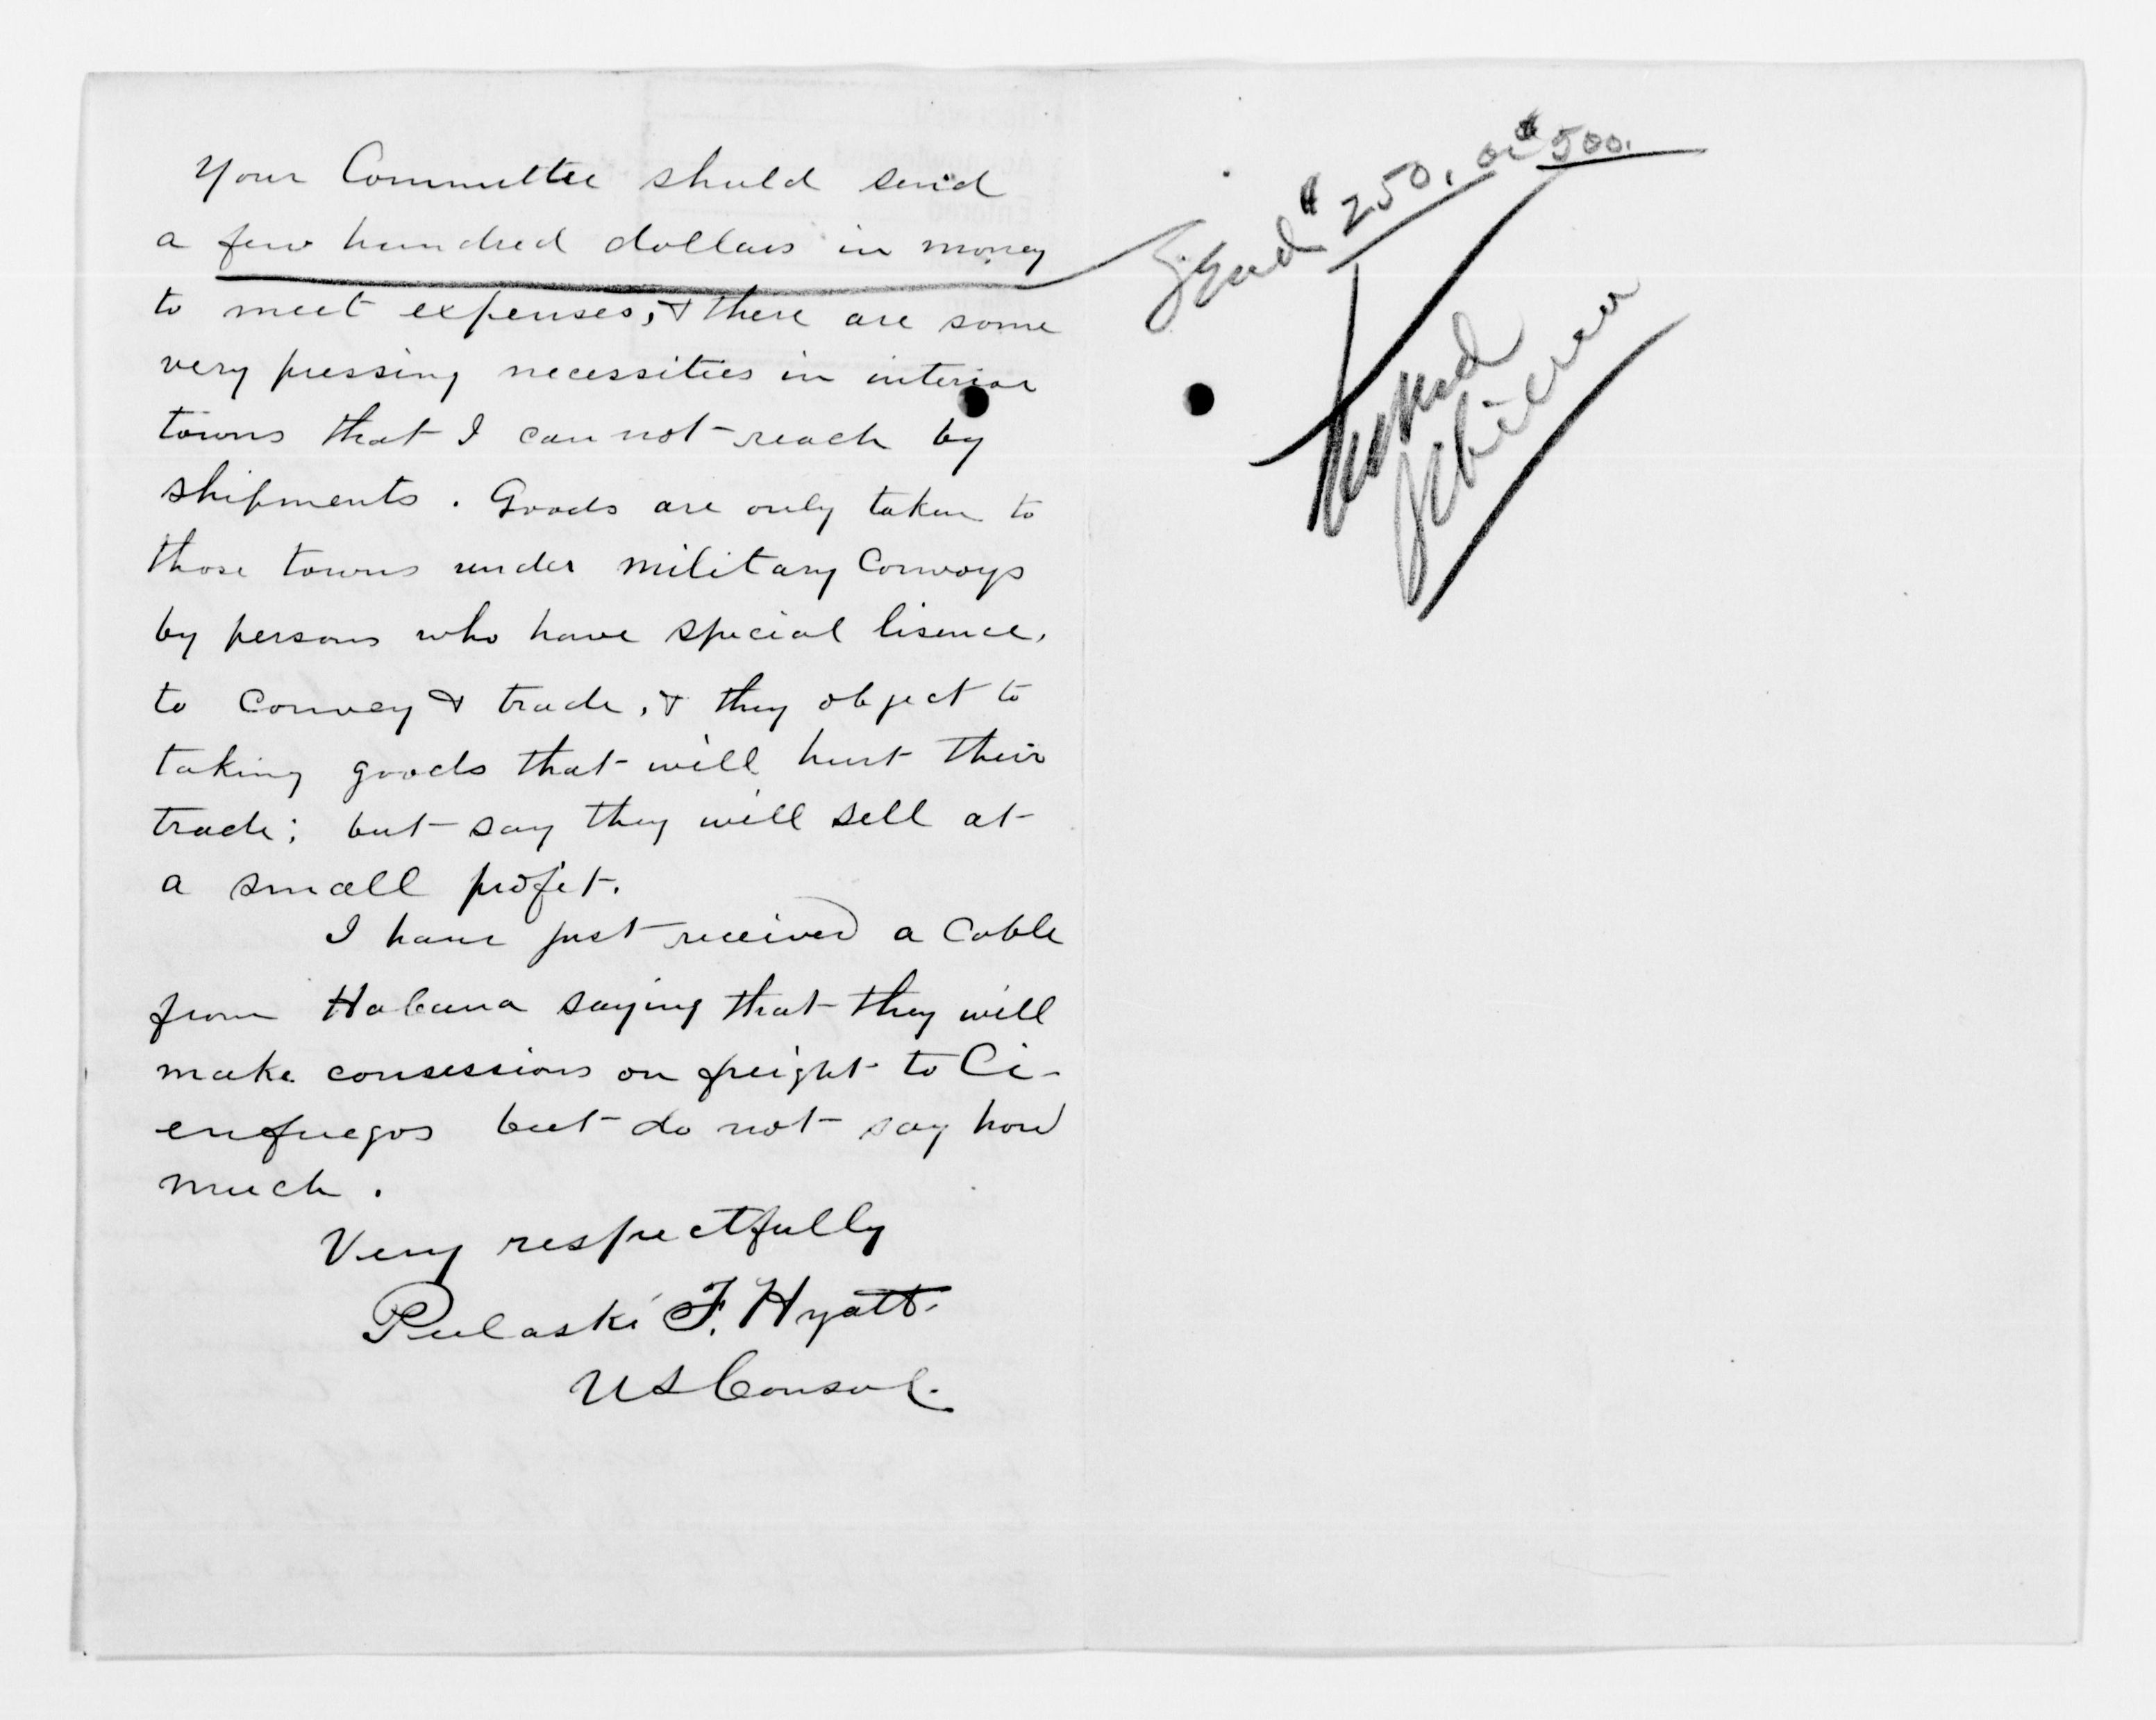 Your Committee should send
a few hundred dollars in money
to meet expenses, & there are some
very pressing necessities in interior
towns that I can not reach by
shipments. Goods are only taken to
those towns under military Convoys
by persons who have special lisence,
to Convey & trade, & they object to
taking goods that will hurt their
trade; but say they will sell at
a small profit.
I have just received a Cable
from Habana saying that they will
make consessions on freight to Ci-
enfuegos but do not say how
much.
Very respectfully
Pulaski F. Hyatt.
US Consul.
Send $250. or $500.